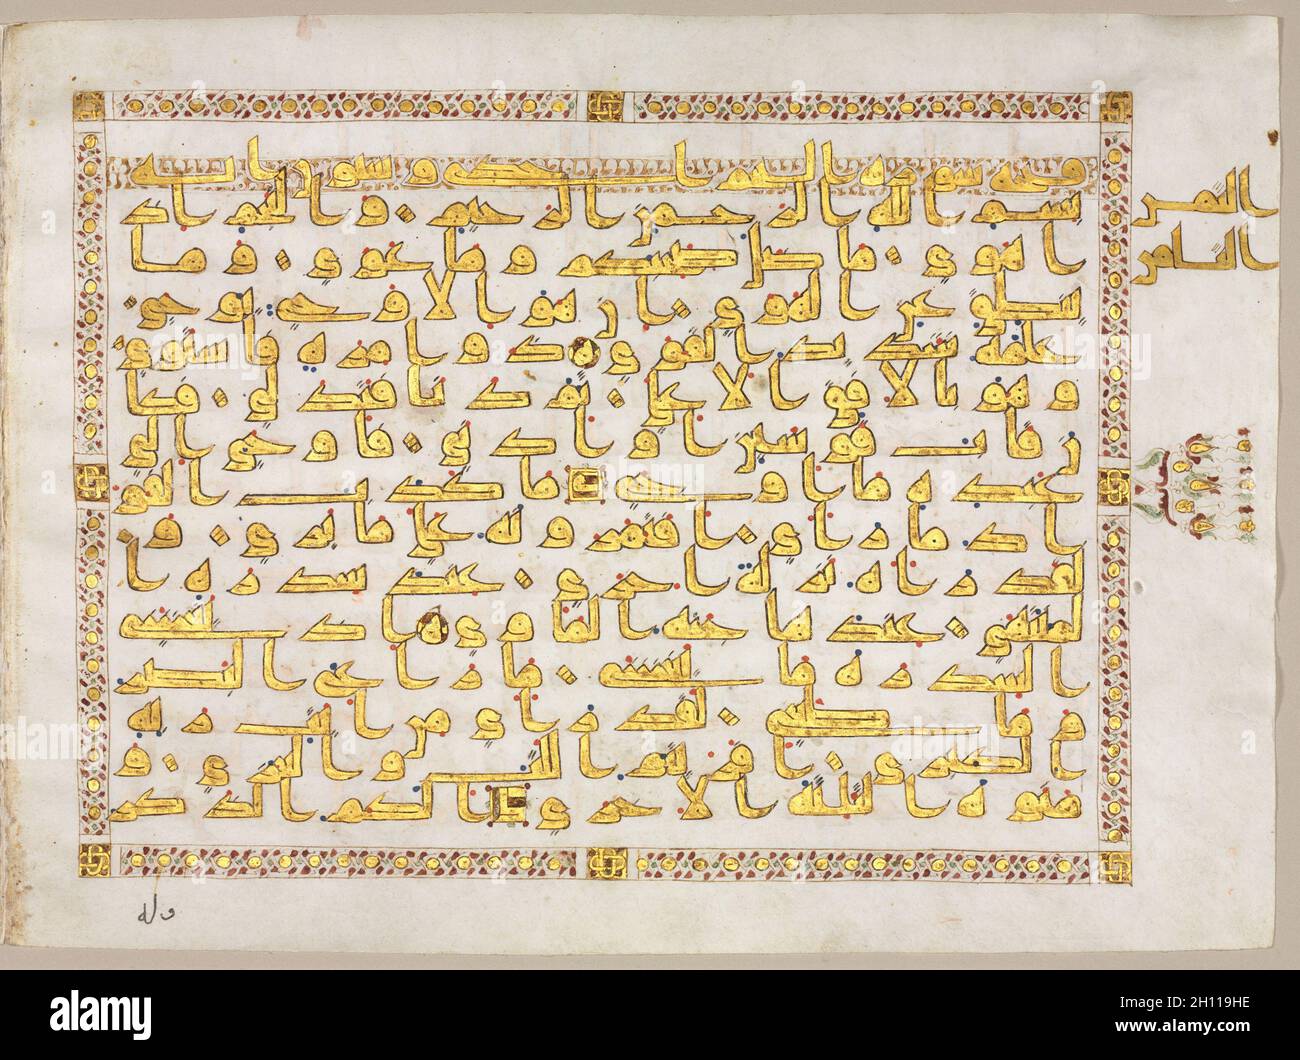 بسم الله الرحمن الرحيم والنجم اذ
ا هوى ما ضل صحبكم وما غوى وما
ينطق عن الهوى ان هو الا وحى يوحى
علمه شديد القوى ذو مرة فاستوى
وهو بالافق الاعلى ثم دنا فتدلى فكا
ن قاب قوسين او ادنى فاوحى الى
عبده ما اوحى ما كذب الفو
اد ما راى افتمرونه على ما يرى و
لقد راه نزلة اخرى عند سدرة ا
لمنتهى عندها جنة الماوى اذ يغشى
السدرة ما يغشى ما زاغ البصر
وما طغى لقد راى من ايت ربه
الكبرى افريتم اللت والعزى و
منوة الثالثة الاخرى الكم الذكر
الثمن
الثامن
alamy
Image ID: 2H119HE
www.alamy.com